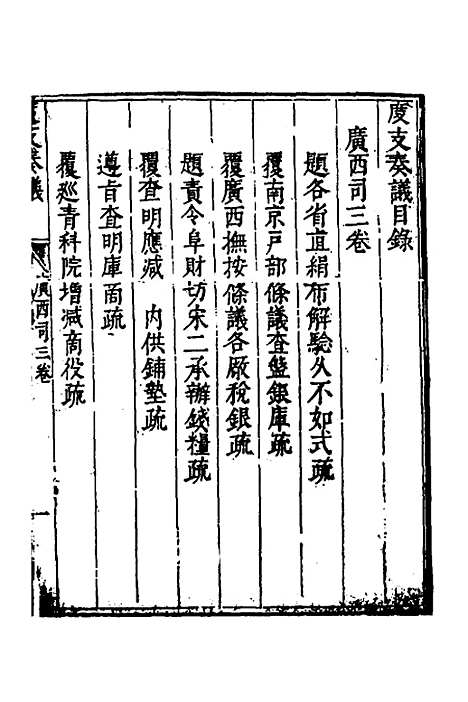 度支奏議目錄
廣西司三卷
題各省直絹布解驗久不如式疏
覆南京戸部條議查盤銀庫疏
覆廣西撫按條議各厰稅銀疏
題責令阜財坊宋二承辦錢糧疏
覆查明應減　內供鋪墊疏
遵旨查明庫面疏
覆巡青科院增減商役疏
度支奏議
廣西司三卷
一